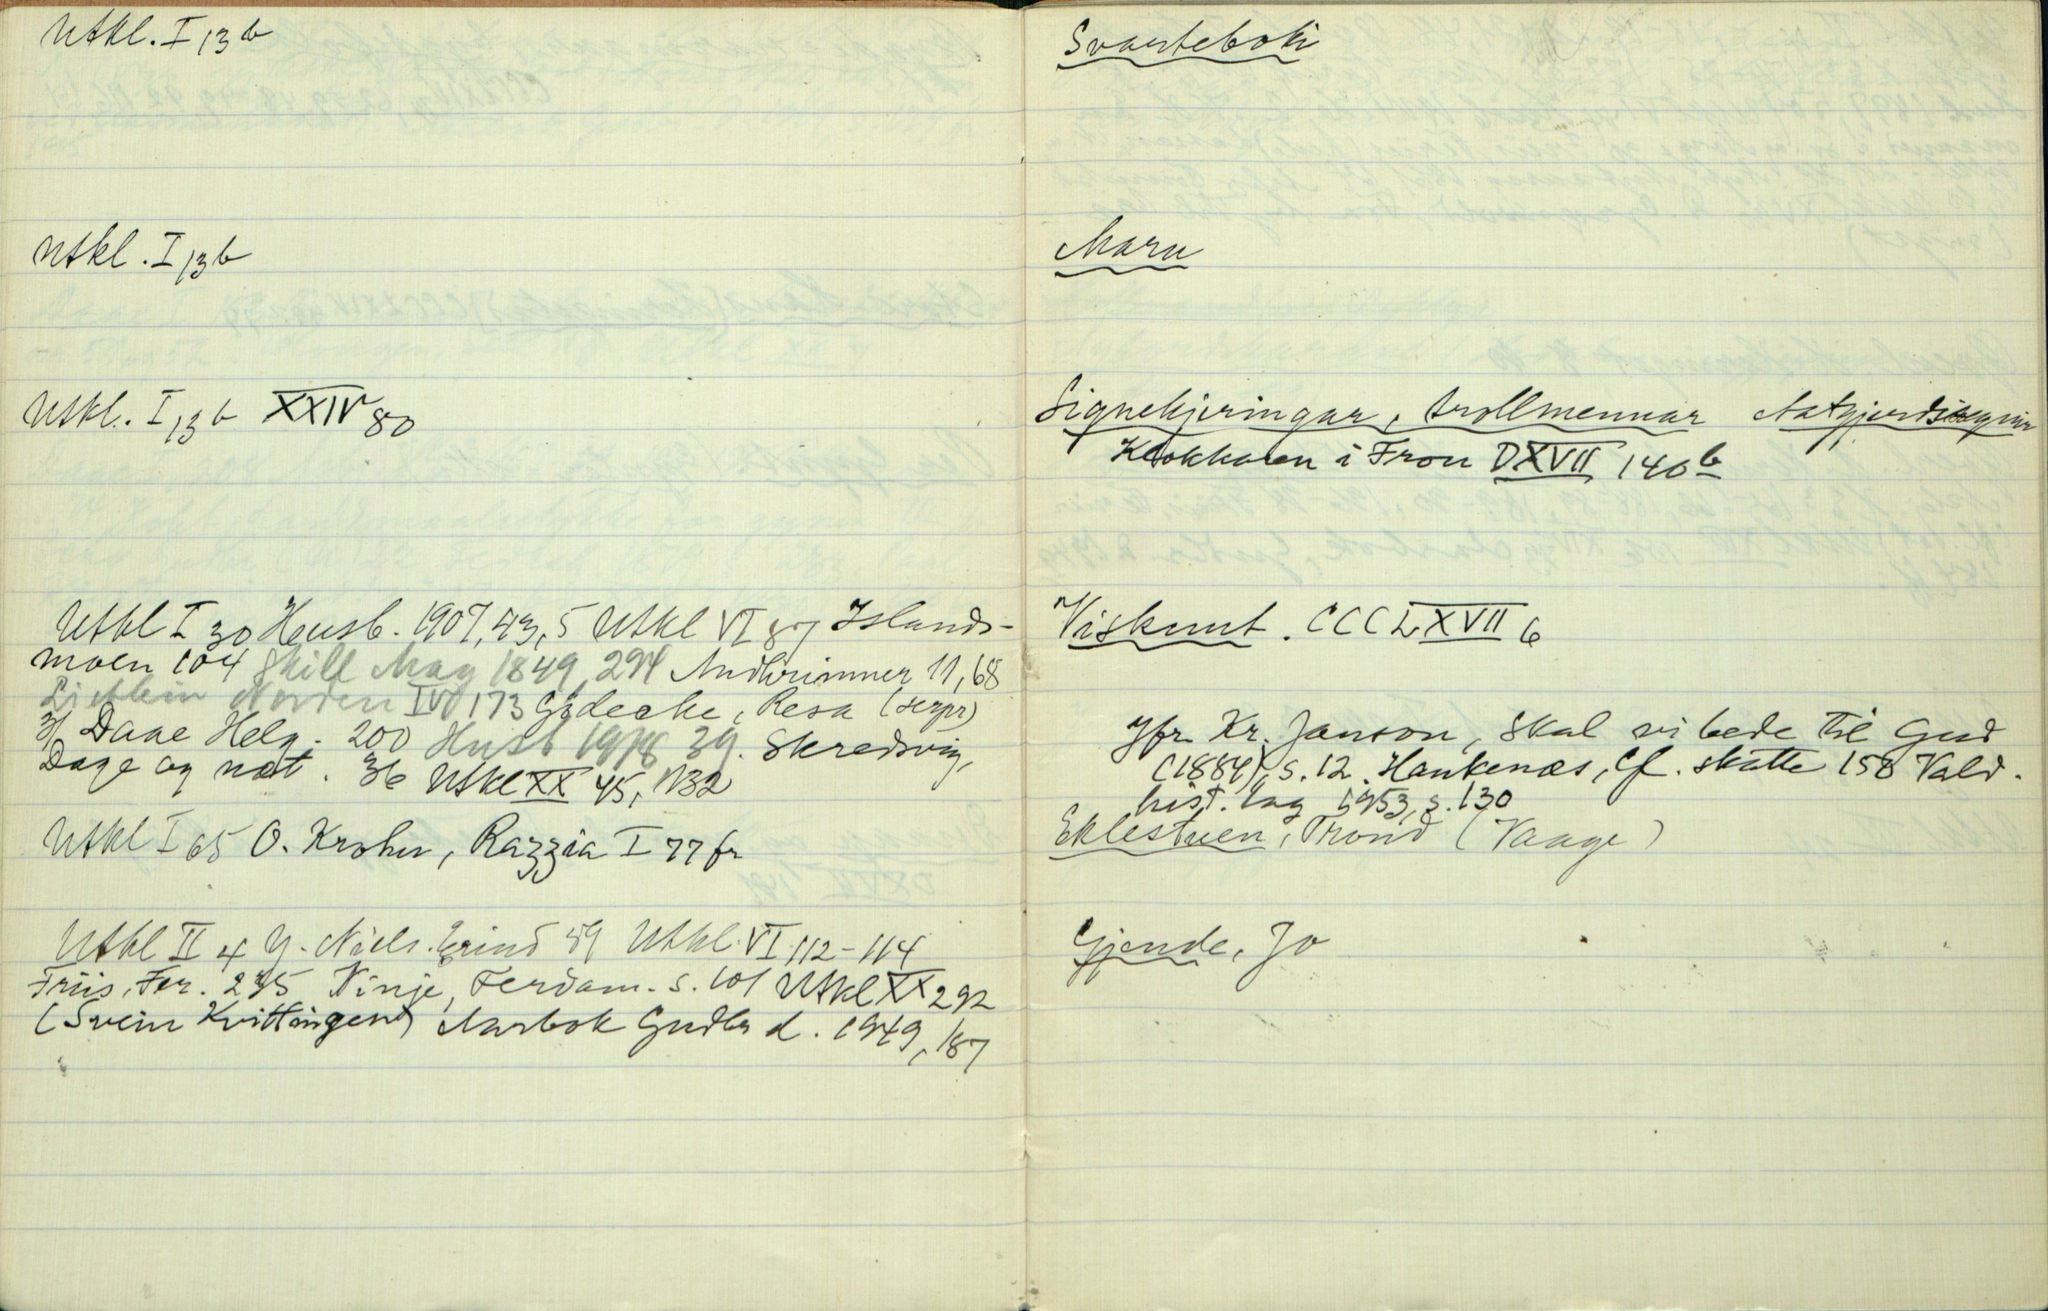 Utkl. I 13 b
Utkl. I 13 b
Utkl. I 13 b XXIV 80
Utkl I 30 Heusb. 1907, 43, 5 Utkl VI 87 Islands-
moen 104 Skill Mag 1849, 294 Andhrimner 11, 68
Norden IV 173 Gödecke, Resa
Daae Helg. 200 Husb 39. Skredsvig,
Dage og næt. 36 Utkl XX 45, 132
Utkl I 65 O. Krohn, Razzia I 77 fr
Utkl II 4 Y. Niels. 59 Utkl. VI 112-114
Friis, Fer. 235 Vinje, Ferdam. s. 101 Utkl XX 292
(Svein Kvittingen) Aarbok Gudbr d. 1949, 187
Svarteboki
Mara
Signekjeringar, trollmennar Aatgjerdsegnir
Klokkaren i Fron DXVII 140 b
Visknut. CCCLXVII 6
Jfr Kr. Janson, Skal vi bede til Gud
(1884), s. 12. Haukenæs, Cf. skatte 158 Vald.
hist. lag 1953, s. 130
Eklestuen, Trond (Vaage)
Gjende, Jo